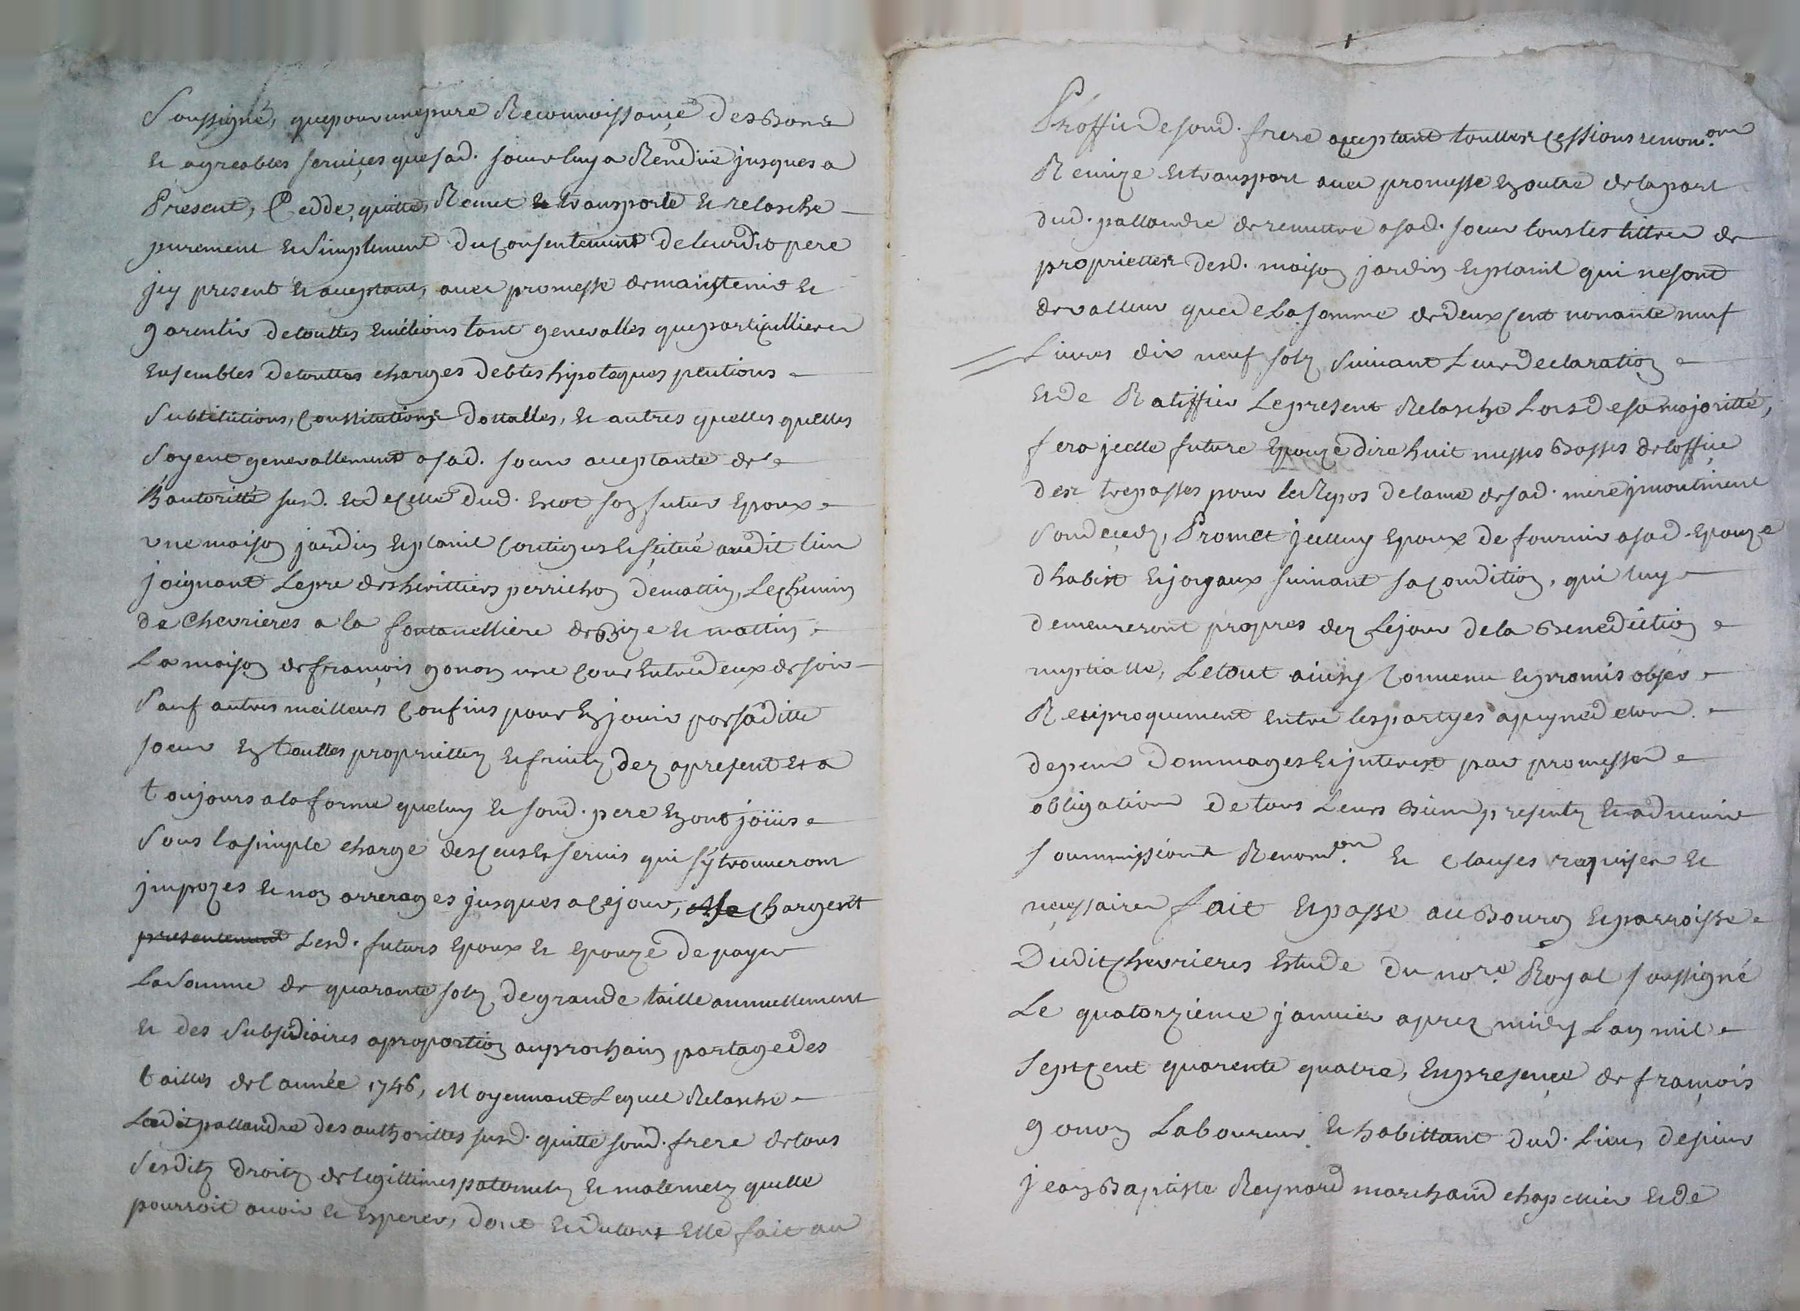 Soussigné, que pour une pure Reconnoissançe des Bons
et agreables serviçes que sad. sœur luy a Rendüe jusques a
Present, Cedde, quitte, Remet et transporte et relasche
purement et simplement du Consentement de leurdit pere
jcy present et acceptant, avec promesse de maintenir et
garentir de touttes evictions tant generalles que particullieres
Ensembles de touttes charges debtes hipoteques pentions
Substitutions, Constitutions dottalles, et autres quelles quelles
Soyent generallement a sad. sœur acceptante de
L'autoritté susd. et de celle dud. son futur Epoux
une maison jardin et planil Contigus et scitué audit lieu
joignant Le pré des heritiers perrichon de mattin, Le chemin
de Chevrieres a la fontanelliere de Bize et mattin
La maison de françois gonon une Cour Entredeux de soir
Sauf autres meilleurs Confins pour En jouir par saditte
sœur En touttes proprietter et fruits dez a present et a
toujours a la forme que luy et sond. pere En ont joüis
Sous la simple charge des Cens et servis qui s'y trouveront
jmpozés et non arrerages jusques a Ce jour, Chargent
presentement Lesd. futurs Epoux et Epouze de payer
La somme de quarante solz de grande taille annuellement
et des Subsidiaires a proportion au prochain partage des
tailles de l'année 1746, Moyennant Lequel Relasche
Ledit pallandre des authorittés susd. quitte sond. frere de tous
Sesdits droits de legittimes paternels et maternels quelle
pourroit avoir et Esperer, dont et du tout Elle fait au
Proffit de sond. frere acceptant touttes Cessions renon.on
Remize et transport avec promesse En outre de la part
dud. pallandre de remettre a sad. sœur tous les tittres de
proprietter desd. maison jardin et planil qui ne sont
de valleur que de La somme de deux Cent nonante neuf
Livres dix neuf solz suivant Leur declaration
et de Ratiffier Le present Relasche Lors de sa majoritté,
fera jcelle future Epouze dire huit messes Basses de loffiçe
des trepasses pour le Repos de lame de sad. mere
Son deçedz, Promet jcelluy Epoux de fournir a sad. Epouze
d'habist et joyaux suivant sa Condition, qui luy
demeureront propres dez Le jour de la Benediction
nuptialle, Le tout ainsy Convenu et promis obser
Reciproquement Entre les partyes a peyne de tous
depens Dommages et jnterest par promesses
obligations de tous Leurs Biens presents et advenir
soummissions Renon.on et Clauses requises et
neçessaires fait et passé au Bourg et parroisse
Dudit Chevrieres Estude du no.re Royal soussigné
Le quatorzieme janvier aprez midy Lan mil
sept Cent quarente quatre, En presençe de françois
gonon Laboureur et habittant dud. Lieu, de sieur
jean Baptiste Reynard marchand chapellier et de